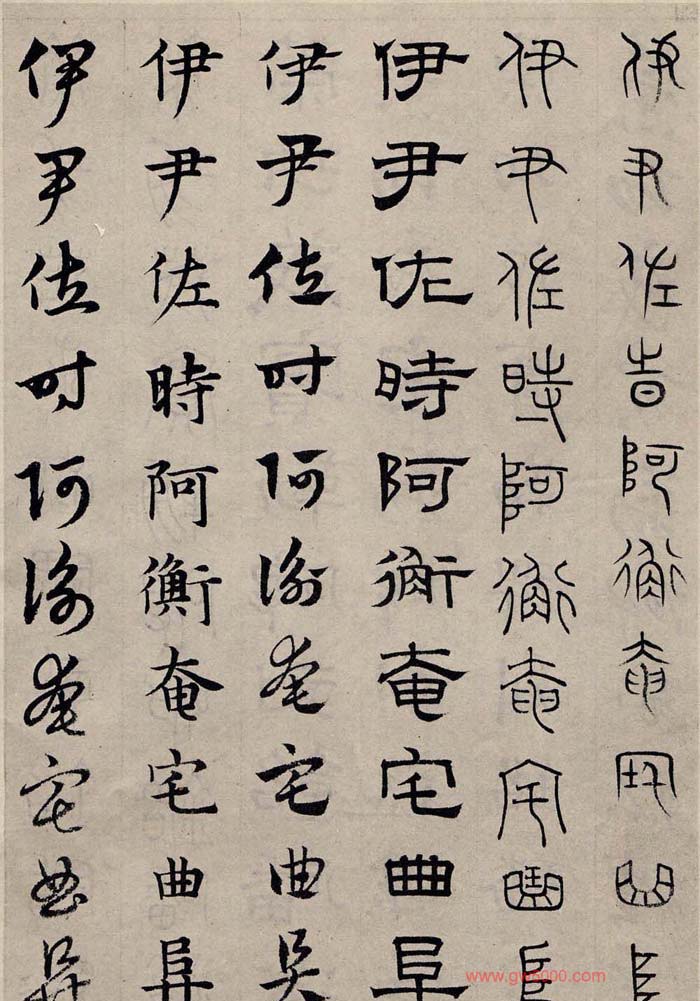 伊尹佐時阿衡奄宅曲阜
伊尹佐時阿衡奄宅曲阜
伊尹佐時阿衡奄宅曲阜
伊尹佐時阿衡奄宅曲阜
伊尹佐時阿衡奄宅曲阜
伊尹佐時阿衡奄宅曲阜